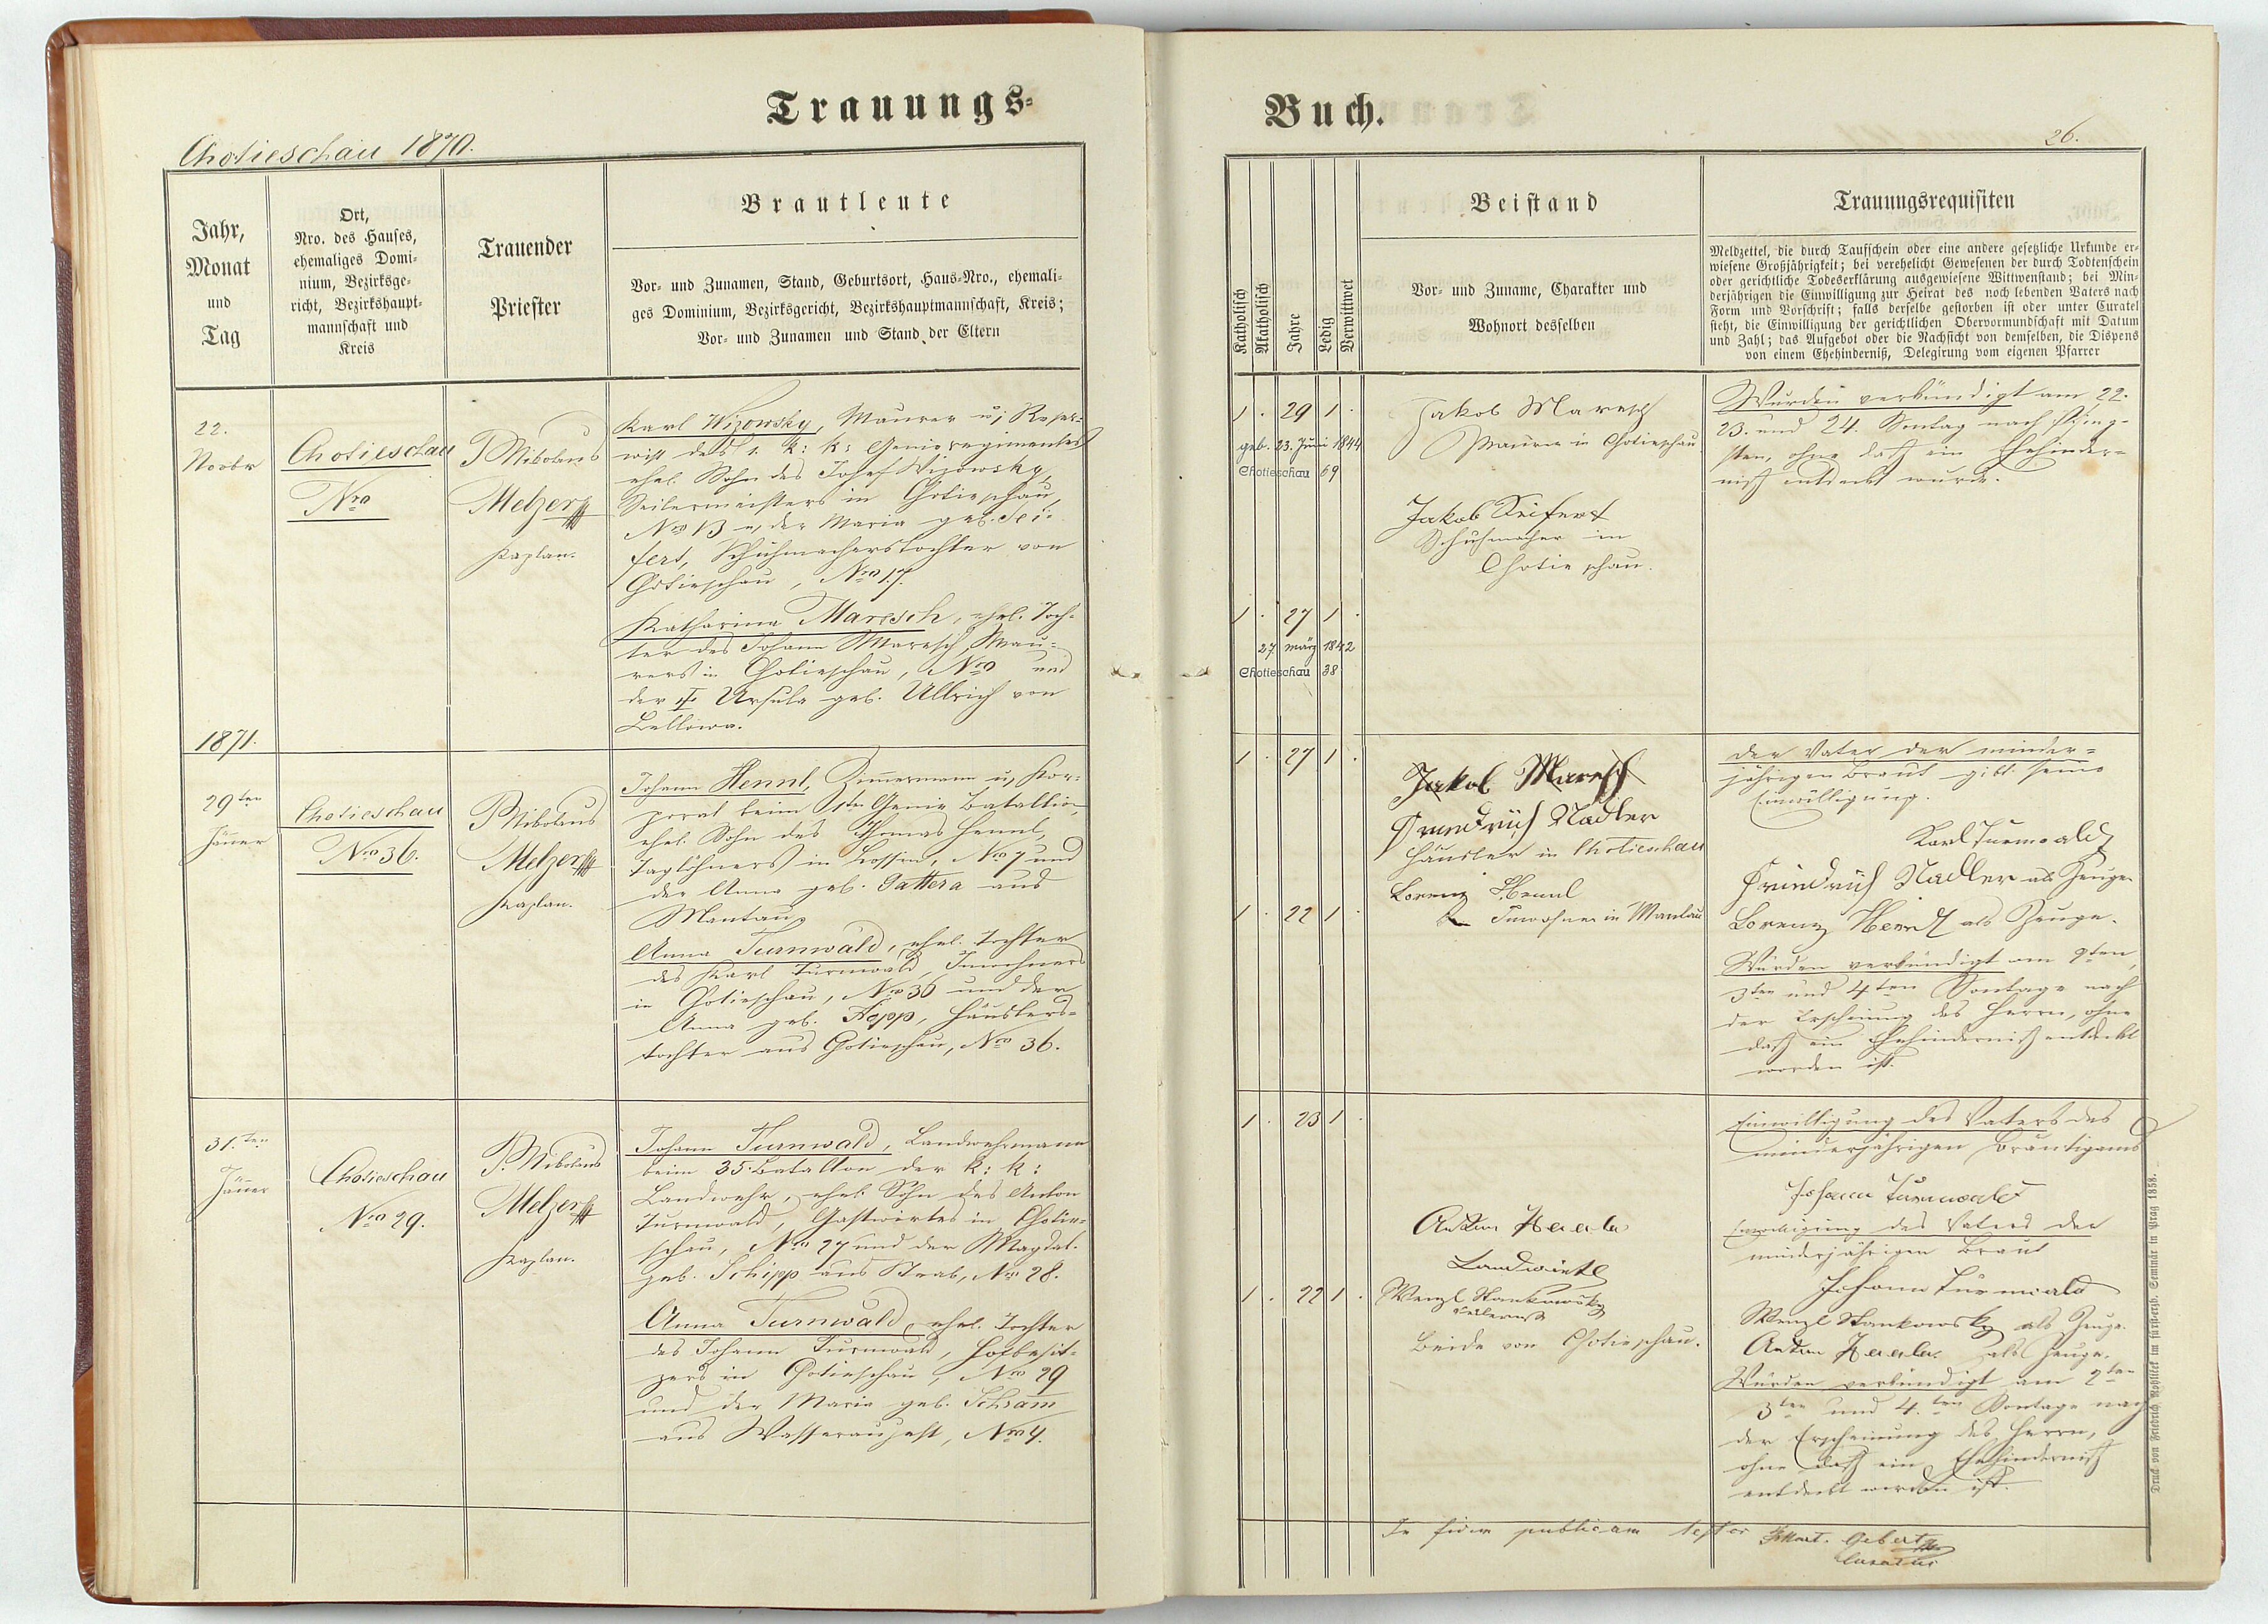 Trauungs-
Chotieschau 1870.
Jahr,
Monat
und
Tag
Ort,
Nro. des Hauses,
ehemaliges Domi-
nium, Bezirksge-
richt, Bezirkshaupt-
mannschaft und
Kreis
Trauender
Priester
Brautleute
Vor- und Zunamen, Stand, Geburtsort, Haus-Nro., ehemali-
ges Dominium, Bezirksgericht, Bezirkshauptmannschaft, Kreis;
Vor- und Zunamen und Stand der Eltern
22.
Novbr
Chotieschau
Nro
P Nikolaus
Melzer
Kaplan.
Karl Wizowsky, Maurer u. Reser-
vist des 1. k: k: Genieregimentes
ehel. Sohn des Josef Wizowsky,
Seilermeisters in Chotieschau,
Nro 13 u. der Maria geb. Sei-
fert, Schuhmacherstochter von
Chotieschau, Nro 17.
Katharina Maresch, ehel. Toch-
ter des Johann Maresch, Mau-
rers in Chotieschau, Nro und
der Ursula geb. Ullrich von
1871.
29ten
Jänner
Chotieschau
Nro 36.
P Nikolaus
Melzer
Kaplan.
Johann Hennl, Zimmermann u. Kor-
poral beim 1ten Genie Batallion,
ehel. Sohn des Thomas Hennl,
Taglöhners in Lossin, Nro 7 und
der Anna geb. Gattera aus
Mantau.
Anna Turnwald, ehel. Tochter
des Karl Turnwald, Inwohners
in Chotieschau, Nro 36 und der
Anna geb. Häuslers-
tochter aus Chotieschau, Nro 36.
31.ten
Jänner
Chotieschau
Nro 29.
P. Nikolaus
Melzer
Kaplan.
Johann Turnwald, Landwehrmann
beim 35. Batallion der k: k:
Landwehr, ehel. Sohn des Anton
Turnwald, Gastwirtes in Chotie-
schau, Nro 27 und der Magdal.
geb. Schipp aus Strab, Nro 28.
Anna Turnwald, ehel. Tochter
des Johann Turnwald, Hofbesit-
zers in Chotieschau, Nro 29
und der Maria geb. Schram̅
aus Wasseraujest, Nro 4.
Buch.
26.
Katholisch
Akatholisch
Jahre
Ledig
Verwittwet
Beistand
Vor- und Zuname, Charakter und
Wohnort desselben
Trauungsrequisiten
Meldzettel, die durch Taufschein oder eine andere gesetzliche Urkunde er-
wiesene Großjährigkeit; bei verehelicht Gewesenen der durch Todtenschein
oder gerichtliche Todeserklärung ausgewiesene Wittwenstand; bei Min-
derjährigen die Einwilligung zur Heirat des noch lebenden Vaters nach
Form und Vorschrift; falls derselbe gestorben ist oder unter Curatel
steht, die Einwilligung der gerichtlichen Obervormundschaft mit Datum
und Zahl; das Aufgebot oder die Nachsicht von demselben, die Dispens
von einem Ehehinderniß, Delegirung vom eigenen Pfarrer
1 . 29 1 .
geb. 23. Juni 1844
Chotieschau 69
1 . 27 1 .
27 märz 1842
Chotieschau 38
Jakob Maresch
Maurer in Chotieschau
Jakob Seifert
Schuhmacher in
Chotieschau.
Wurden verkündigt am 22.
23. und 24. Sontag nach Pfing-
sten, ohne daß ein Ehehinder-
niß entdeckt wurde.
1 . 27 1 .
1 . 22 1 .
Jakob Maresch
Friedrich Nadler
Häusler in Chotieschau
Lorenz Hennl
Inwohner in Mantau
Der Vater der minder-
jährigen Braut gibt seine
Einwilligung.
Karl Turnwald
Friedrich Nadler als Zeuge
Lorenz Hennl als Zeuge.
Wurden verkündigt am 2ten,
3ten und 4ten Sontage nach
der Erscheinung des Herrn, ohne
daß ein Ehehinderniß entdeckt
worden ist.
1 . 23 1 .
1 . 22 1 .
Anton
Landwirth
Wenzl Stankowsky
Beide von Chotieschau.
Einwilligung des Vaters des
minderjährigen Bräutigams
Einwilligung des Vaters der
minderjährigen Braut
Johann Turnwald
Wenzl Stankowsky als Zeuge
Anton als Zeuge.
Wurden verkündigt am 2ten
3ten und 4.ten Sontage nach
der Erscheinung des Herrn,
ohne daß ein Ehehinderniß
entdeckt worden ist.
In fidem publicam testor
Gebert
Curatus
Druck von Friedrich Rohliček im fürsterzb. Seminar in Prag 1858.